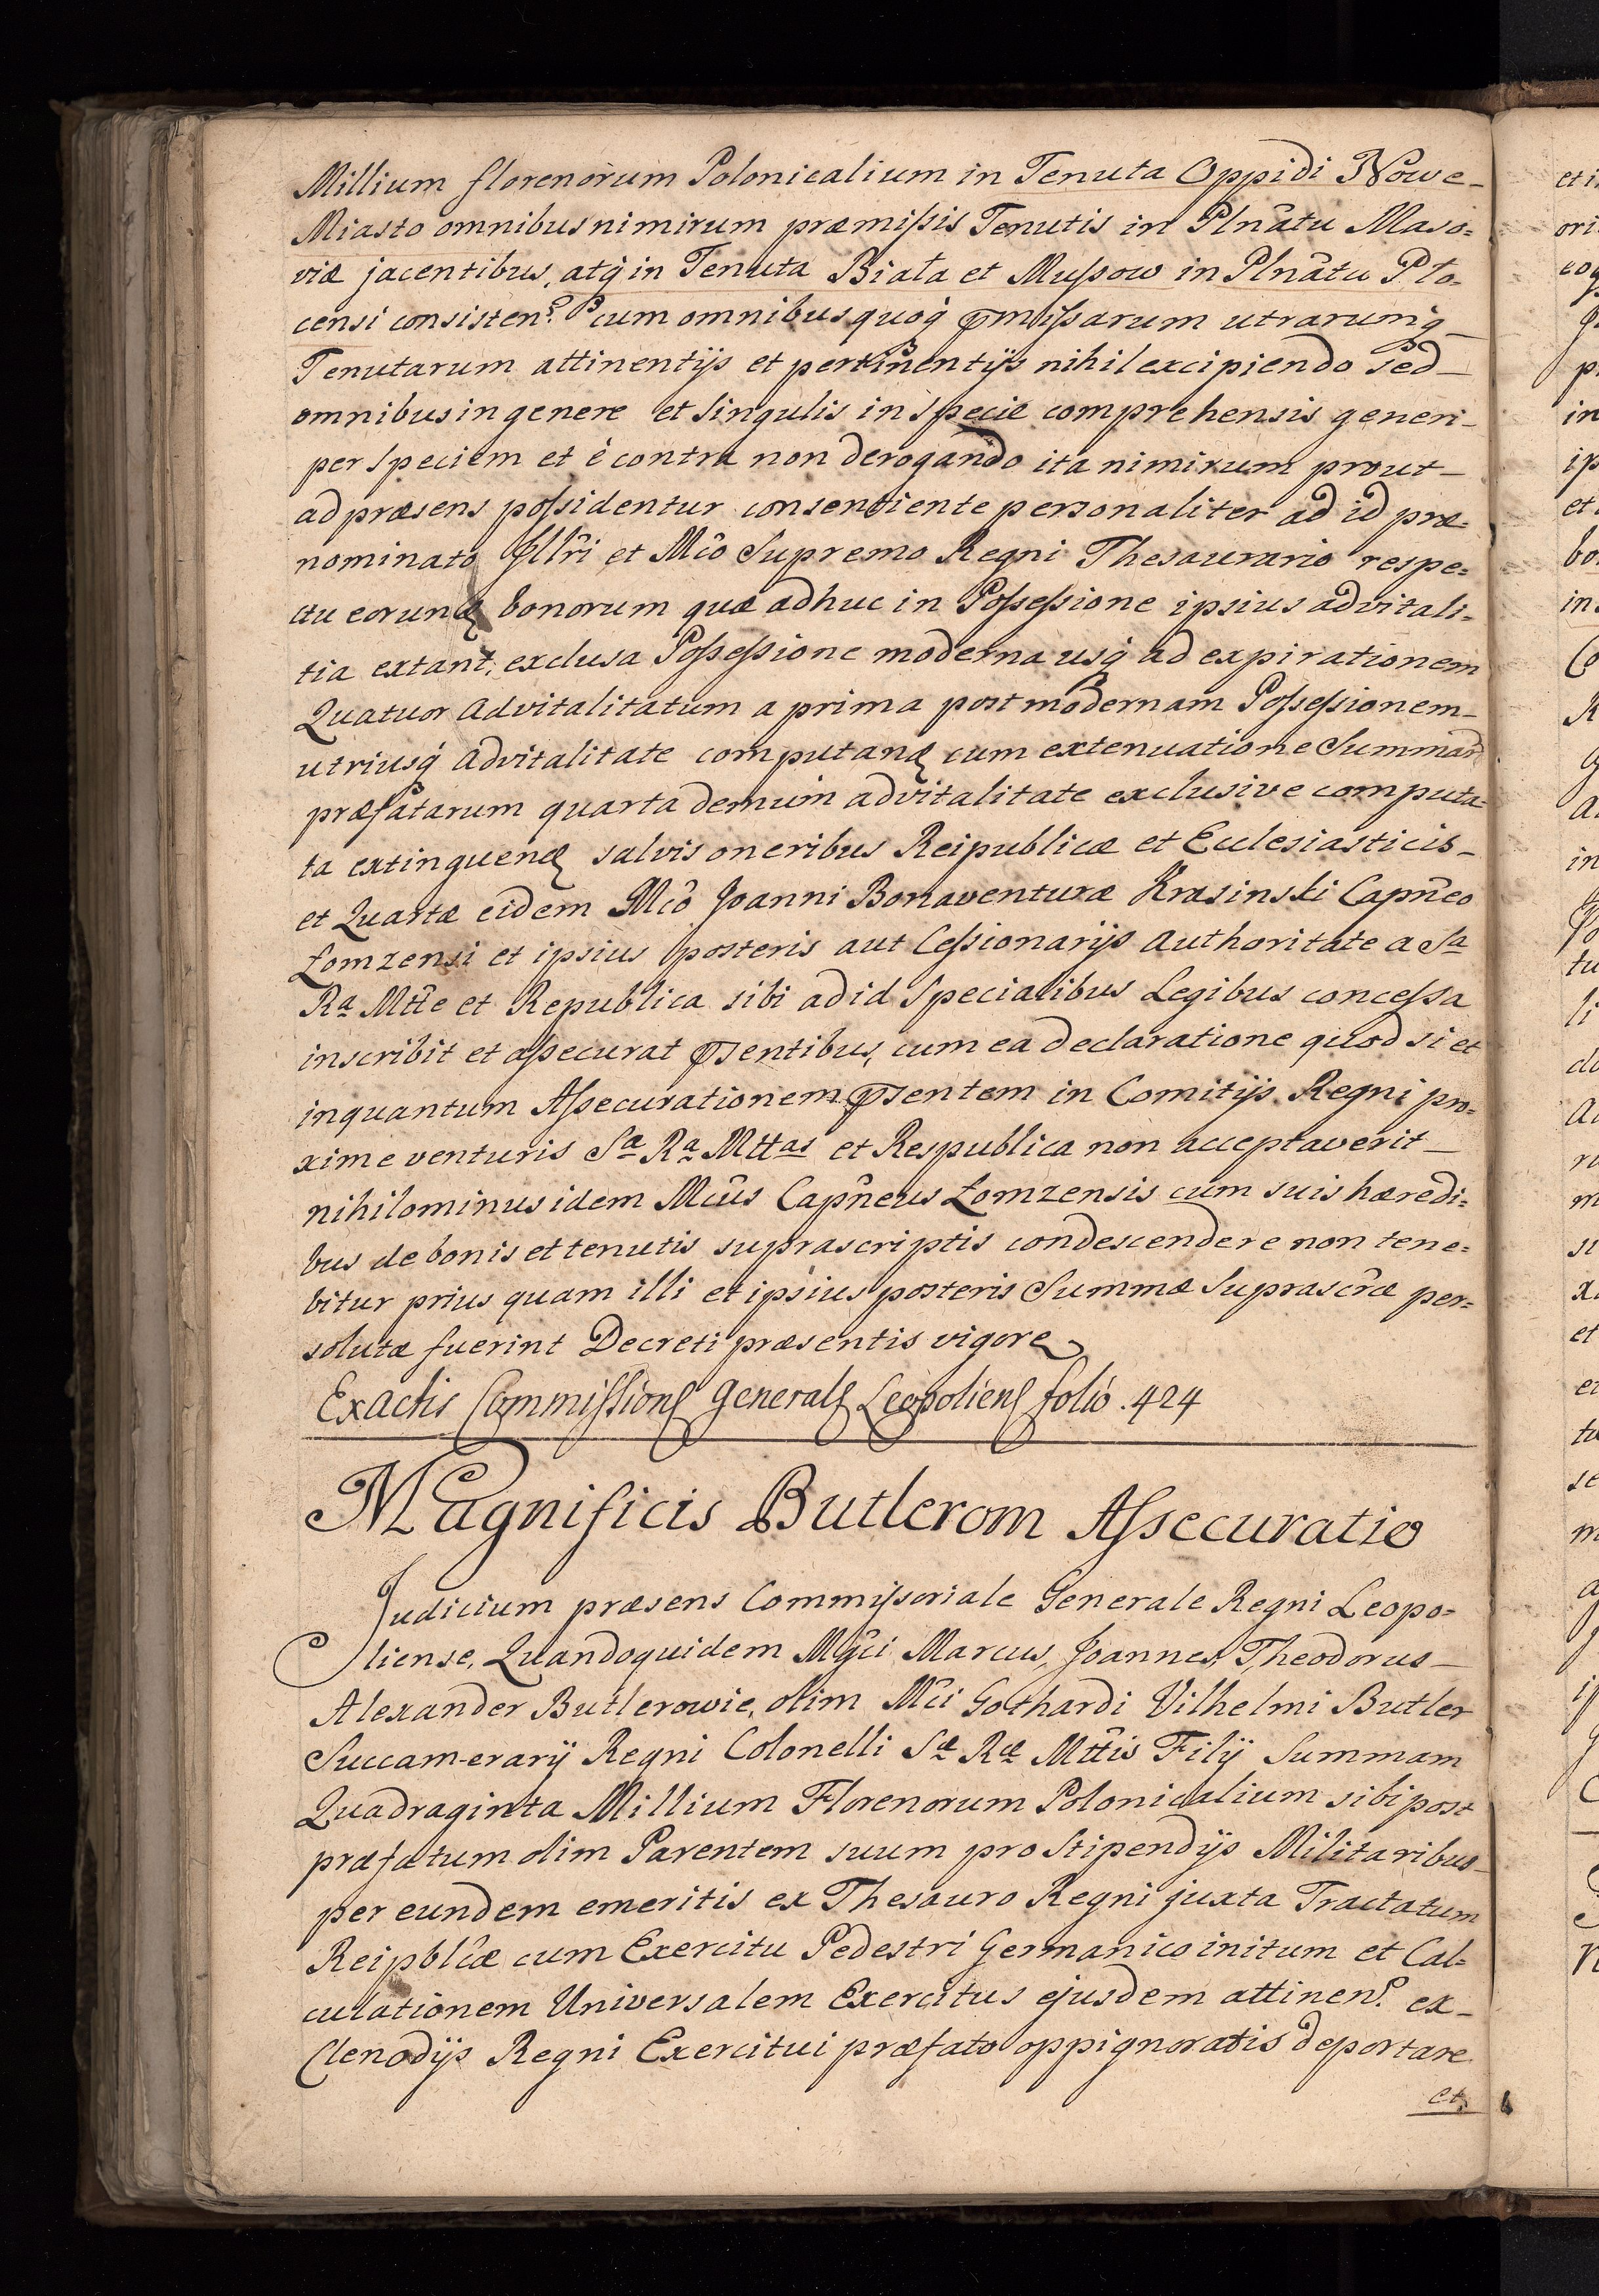 Millium florenorum Polonicalium in Tenuta Oppidi Nowe-
Miasto omnibus nimirum præmissis Tenutis in Plnãtu Maso=
viæ jacentibus, atq́ in Tenuta Biała et Mussow in Plnãtu Plo-
censi consisten: cum omnibus quoq́ pmissarum utrarumq́
Tenutarum attinentijs et pertinentijs nihil excipiendo sed
omnibus in genere et singulis in specie comprehensis generi-
per speciem et è contra non derogando ita nimirum prout
ad præsens possidentur consentiente personaliter ad id præ=
nominato Illr̃i et Mc̃o Supremo Regni Thesaurario respe=
ctu eorund bonorum quæ adhuc in Possessione ipsius advitali=
tia extant, exclusa Possessione moderna usq́ ad expirationem
Quatuor Advitalitatum a prima post modernam Possessionem
utriusq́ Advitalitate computand cum extenuatione Summar
præfatarum quarta demum advitalitate exclusive computa-
ta extinguend salvis oneribus Reipublicæ et Ecclesiasticis
et Quartæ eidem Mc̃o Joanni Bonaventuræ Krasinski Capñeo
Łomzensi et ipsius posteris aut Cessionarijs Authoritate a Sa
Ra Mtt̃e et Republica sibi ad id specialibus Legibus concessa
inscribit et assecurat psentibus, cum ea declaratione quod si et
inquantum Assecurationem psentem in Comitijs Regni pro=
xime venturis Sa Ra Mttas et Respublica non acceptaverit
nihilominus idem Mc̃us Capñeus Łomzensis cum suis hæredi=
bus de bonis et tenutis suprascriptis condescendere non tene=
bitur prius quam illi et ipsius posteris Summæ Suprascr̃æ per=
solutæ fuerint Decreti præsentis vigore
Ex Actis Commissions Generals Leopoliens folio .424
Magnificis Butlerom Assecuratio
Judicium præsens Commissoriale Generale Regni Leopo=
liense, Quandoquidem Mgc̃i Marcus, Joannes, Theodorus
Alexander Butlerowie, olim Mc̃i Gothardi Vilhelmi Butler
Succam-erarij Regni Colonelli Sæ Ræ Mtt̃is Filij Summam
Quadraginta Millium Florenorum Polonicalium sibi post
præfatum olim Parentem suum pro Stipendijs Militaribus
per eundem emeritis ex Thesauro Regni juxta Tractatum
Reipblc̃æ cum Exercitu Pedestri Germanico initum et Cal=
culationem Universalem Exercitus ejusdem attinen: ex
Clenodijs Regni Exercitui præfato oppignoratis deportare
et